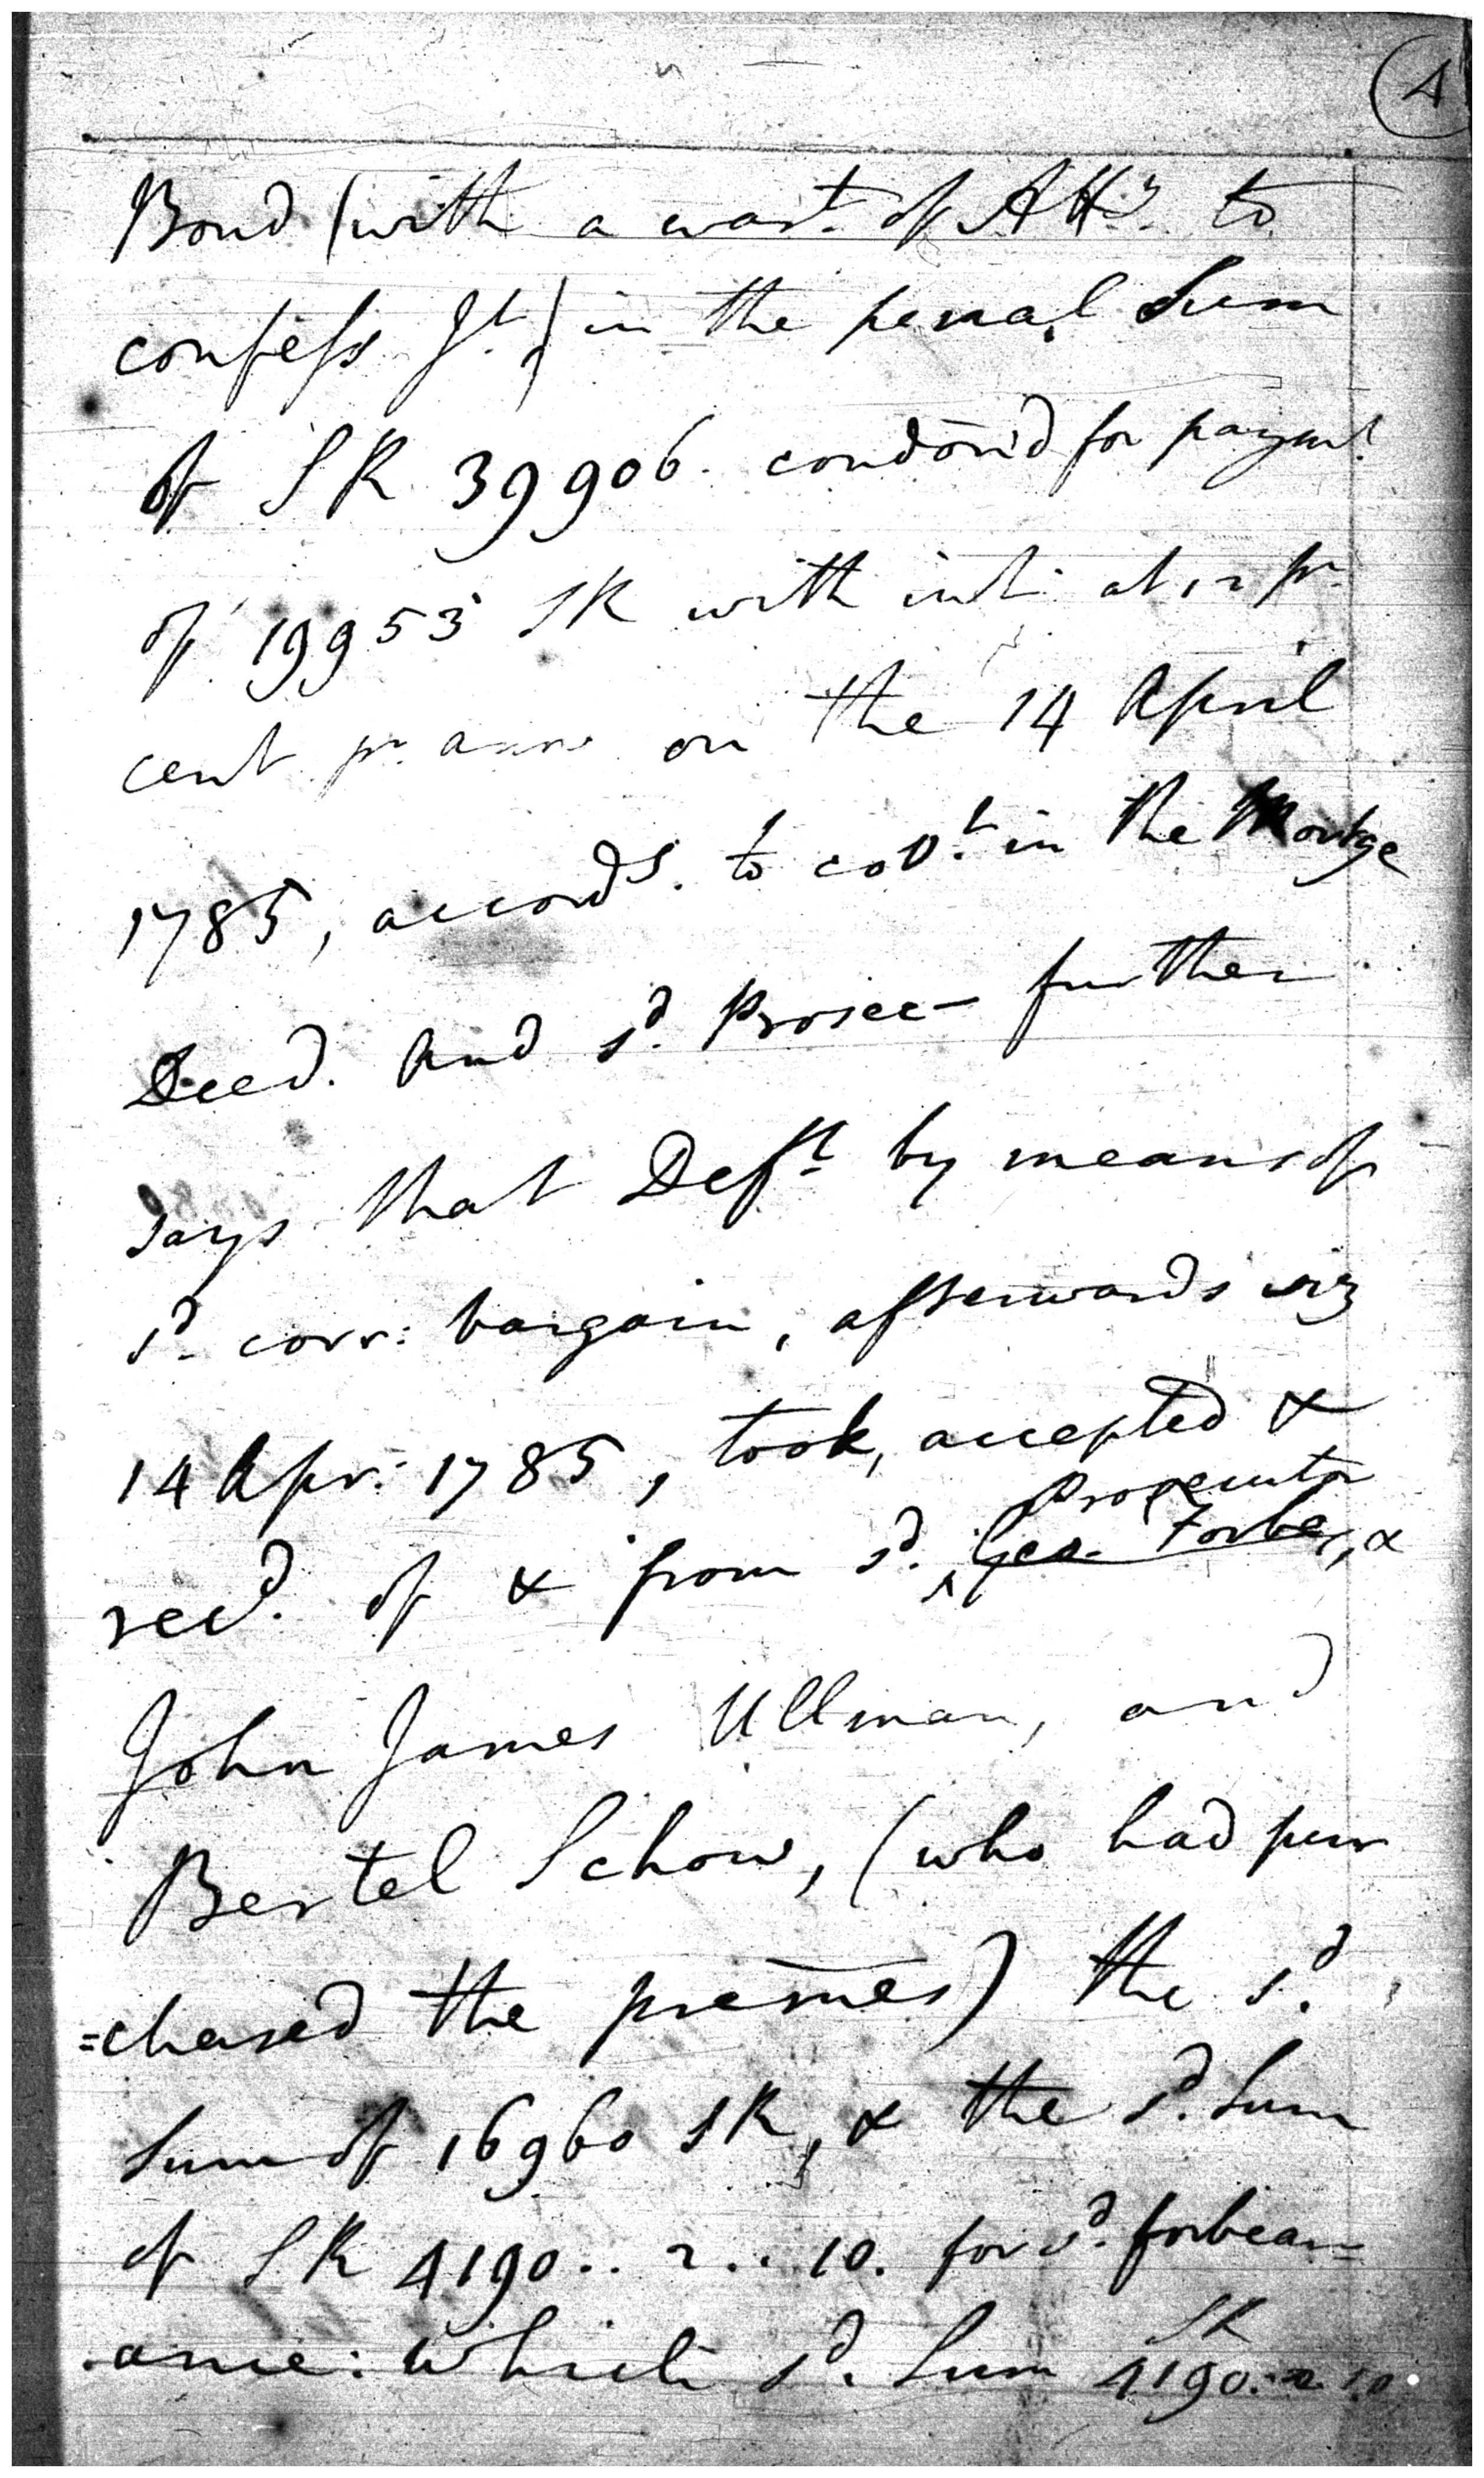 4
Bond (with a wart. of Atty. to
confess Jt.) in the penal Sum
of SR 39906. condōn'd for paymt.
of 19953 SR with int: at 12 pr.
cent pr. ann on the 14 April
1785, accordg. to covt. in the Mortge
Deed. And sd. Prosec– further
says that Deft. by means of
sd. corr: bargain, afterwards viz
14 Apr: 1785, took, accepted &
recd. of & from sd. ^ Prosecutor Geo. Forbes, &
John James Ullman, and
Bertel Schow, (who had pur
=chased the premēs) the sd.
Sum of 16960 SR, & the sd. Sum
of SR 4190.. 2.. 10. for sd. forbear=
ance: which sd. Sum SR 4190.. 2. 10.